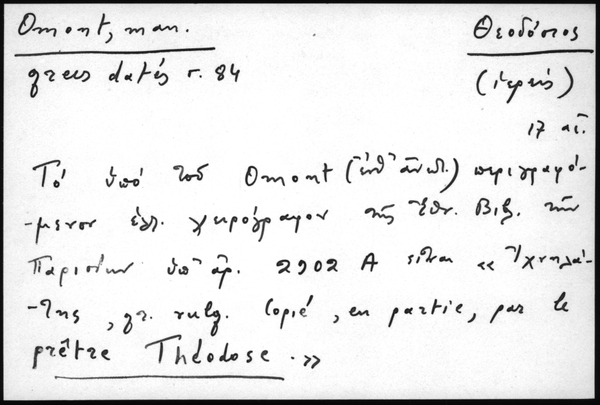 Omont, man.
grecs datés σ. 84
Θεοδόσιος
(ἱερεύς)
17 αἰ.
Τό ὑπό τοῦ Omont (ἔνθ' ἀνωτ.) περιγραφό-
-μενον ἑλλ. χειρόγραφον τῆς Ἐθν. Βιβ. τῶν
Παρισίων ὑπ' ἀρ. 2902 Α εἶναι «Ἰχνηλά-
-της, gr. vulg. Copié, en partie, par le
prêtre Théodose.»